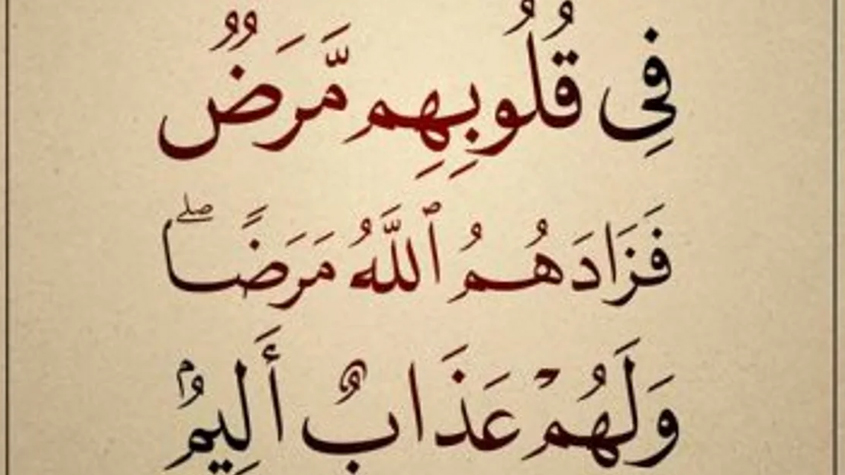 فِى قُلُوبِهِم مَّرَضٌ
فَزَادَهُمُ ٱللَّهُ مَرَضًا ۖ
وَلَهُمْ عَذَابٌ أَلِيمٌۢ